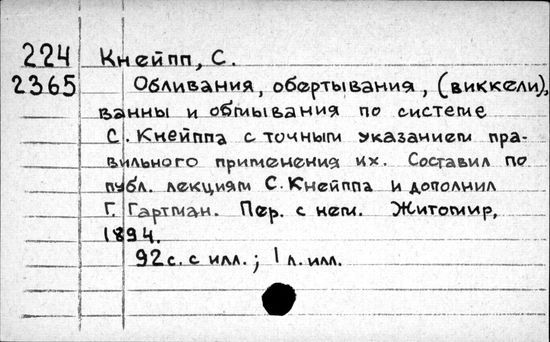 224 Кнейпп, С.
2365 Обливания, обертывания, (виккели),
ванны и обмывания по системе
С. Кнейппа с точным указанием пра-
вильного применения их. Составил по
публ. лекциям С. Кнейппа и дополнил
Г. Гартман. Пер. с нем. Житомир,
1894.
92 с. с илл.; 1 л. илл.